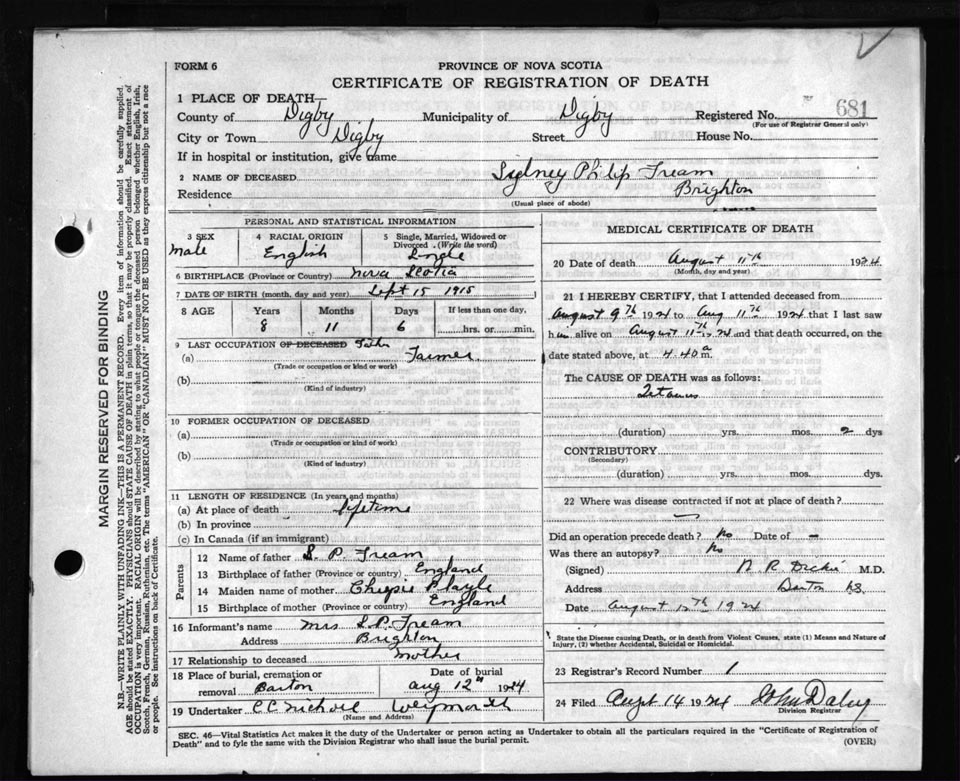 FORM 6
PROVINCE OF NOVA SCOTIA
CERTIFICATE OF REGISTRATION OF DEATH
681
1 PLACE OF DEATH—
County of Digby Municipality of Digby Registered No.
(For use of Registrar General only)
City or Town Digby Street House No.
If in hospital or institution, give name
2 NAME OF DECEASED Sydney Philip Fream
Residence Brighton
(Usual place of abode)
PERSONAL AND STATISTICAL INFORMATION
3 SEX Male
4 RACIAL ORIGIN English
5 Single, Married, Widowed or Divorced. (Write the word) Single
6 BIRTHPLACE (Province or Country) Nova Scotia
7 DATE OF BIRTH (month, day and year) Sept 15 1915
8 AGE Years 8 Months 11 Days 6 If less than one day, hrs. or min.
9 LAST OCCUPATION OF DECEASED Father
(a) Farmer
(Trade or occupation or kind or work)
(b)
(Kind of industry)
10 FORMER OCCUPATION OF DECEASED
(a)
(Trade or occupation or kind of work)
(b)
(Kind of industry)
11 LENGTH OF RESIDENCE (In years and months)
(a) At place of death lifetime
(b) In province
(c) In Canada (if an immigrant)
Parents
12 Name of father S. P. Fream
13 Birthplace of father (Province or country) England
14 Maiden name of mother
15 Birthplace of mother (Province or country) England
16 Informant's name Mrs S. P. Fream
Address Brighton
17 Relationship to deceased mother
18 Place of burial, cremation or removal Barton
Date of burial Aug 12th 1924
19 Undertaker C C Nichol Weymouth
(Name and Address)
MEDICAL CERTIFICATE OF DEATH
20 Date of death August 11th 1924
(Month, day and year)
21 I HEREBY CERTIFY, that I attended deceased from
August 9th 1924 to Aug 11th 1924 that I last saw
him alive on August 11th 1924 and that death occurred, on the
date stated above, at 4.40 a m.
The CAUSE OF DEATH was as follows:
Tetanus
(duration) yrs. mos. 2 dys
CONTRIBUTORY
(Secondary)
(duration) yrs. mos. dys.
22 Where was disease contracted if not at place of death?
Did an operation precede death? No Date of —
Was there an autopsy? No
(Signed) N. R. Dickie M.D.
Address Barton NS
Date August 12th 1924
State the Disease causing Death, or in death from Violent Causes, state (1) Means and Nature of
Injury, (2) whether Accidental, Suicidal or Homicidal.
23 Registrar's Record Number 1
24 Filed Augt 14 1924 John Daley
Division Registrar
SEC. 46—Vital Statistics Act makes it the duty of the Undertaker or person acting as Undertaker to obtain all the particulars required in the "Certificate of Registration of
Death" and to fyle the same with the Division Registrar who shall issue the burial permit.
(OVER)
MARGIN RESERVED FOR BINDING
N.B.—WRITE PLAINLY WITH UNFADING INK—THIS IS A PERMANENT RECORD. Every item of information should be carefully supplied.
AGE should be stated EXACTLY. PHYSICIANS should STATE CAUSE OF DEATH in plain terms, so that it may be properly classified. Exact statement of
OCCUPATION is very important. RACIAL ORIGIN will be described by stating to what people or tongue the deceased person belonged whether English, Irish,
Scotch, French, German, Russian, Ruthenian, etc. The terms "AMERICAN" OR "CANADIAN" MUST NOT BE USED as they express citizenship but not a race
or people. See instructions on back of Certificate.